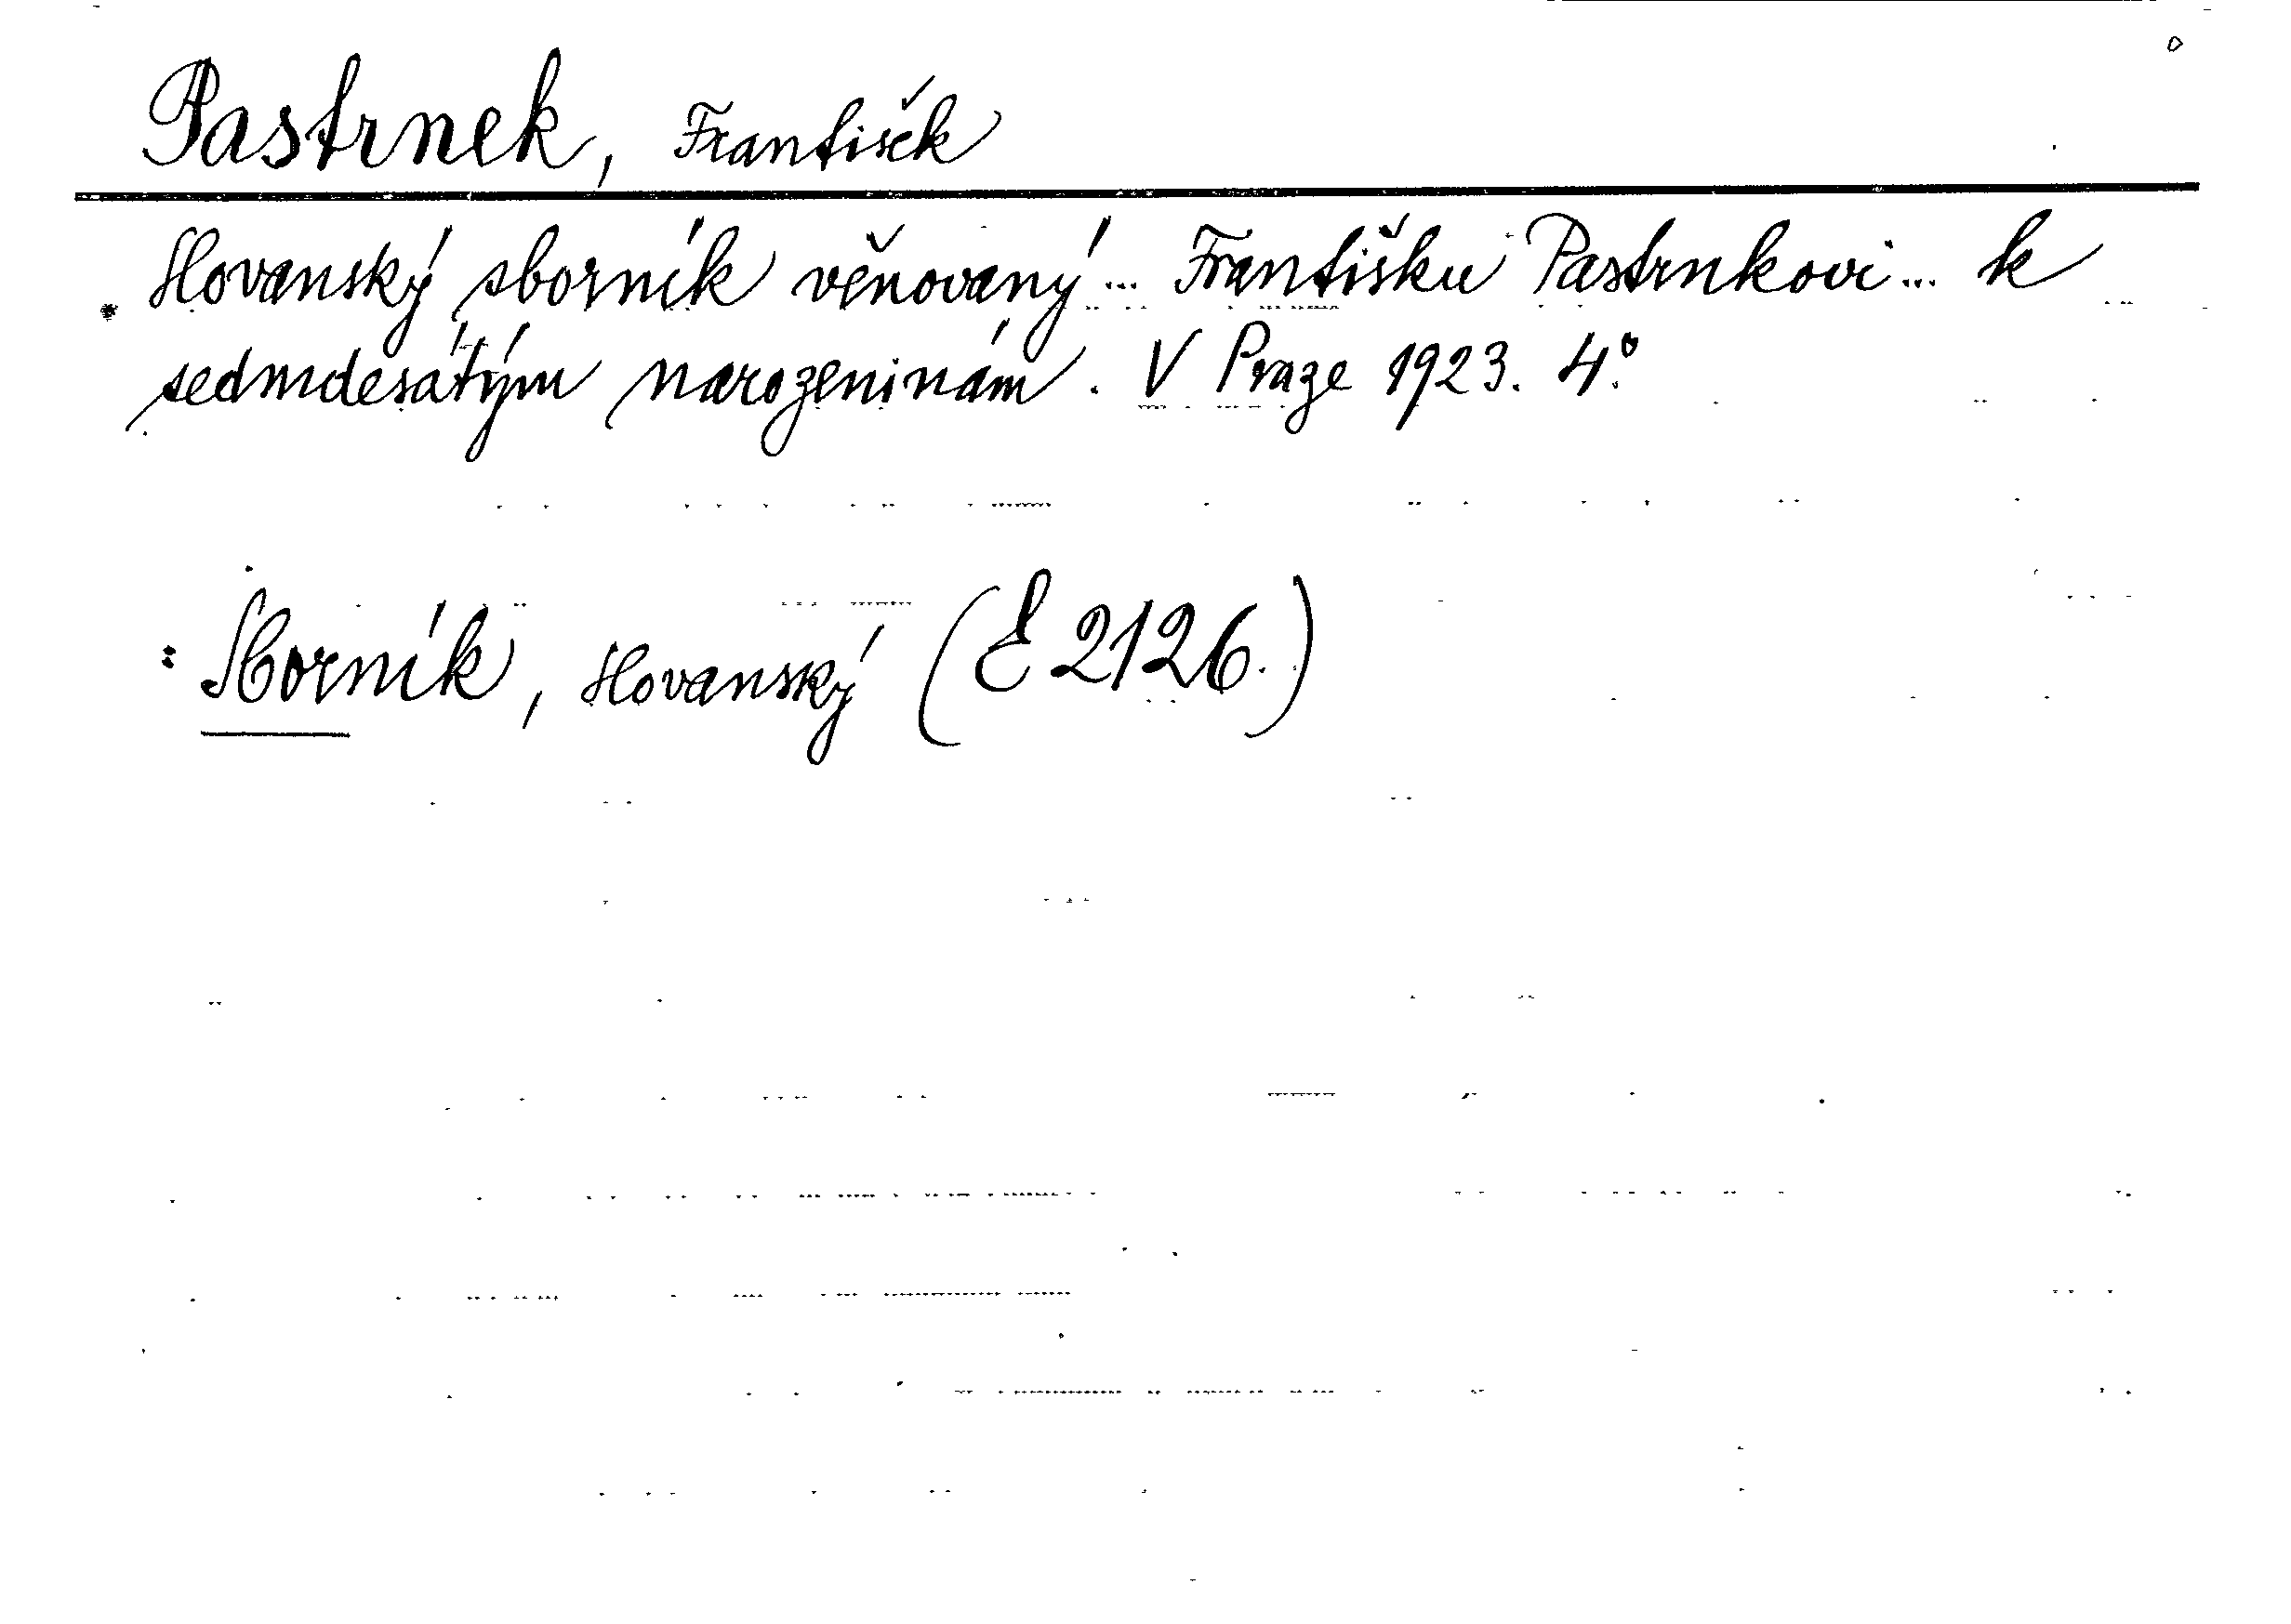 Pastrnek, František
Slovanský sborník věnovaný... Františku Pastrnkovi... k
sedmdesátým narozeninám. V Praze 1923. 4.°
: Sborník, slovanský (E 2126.)